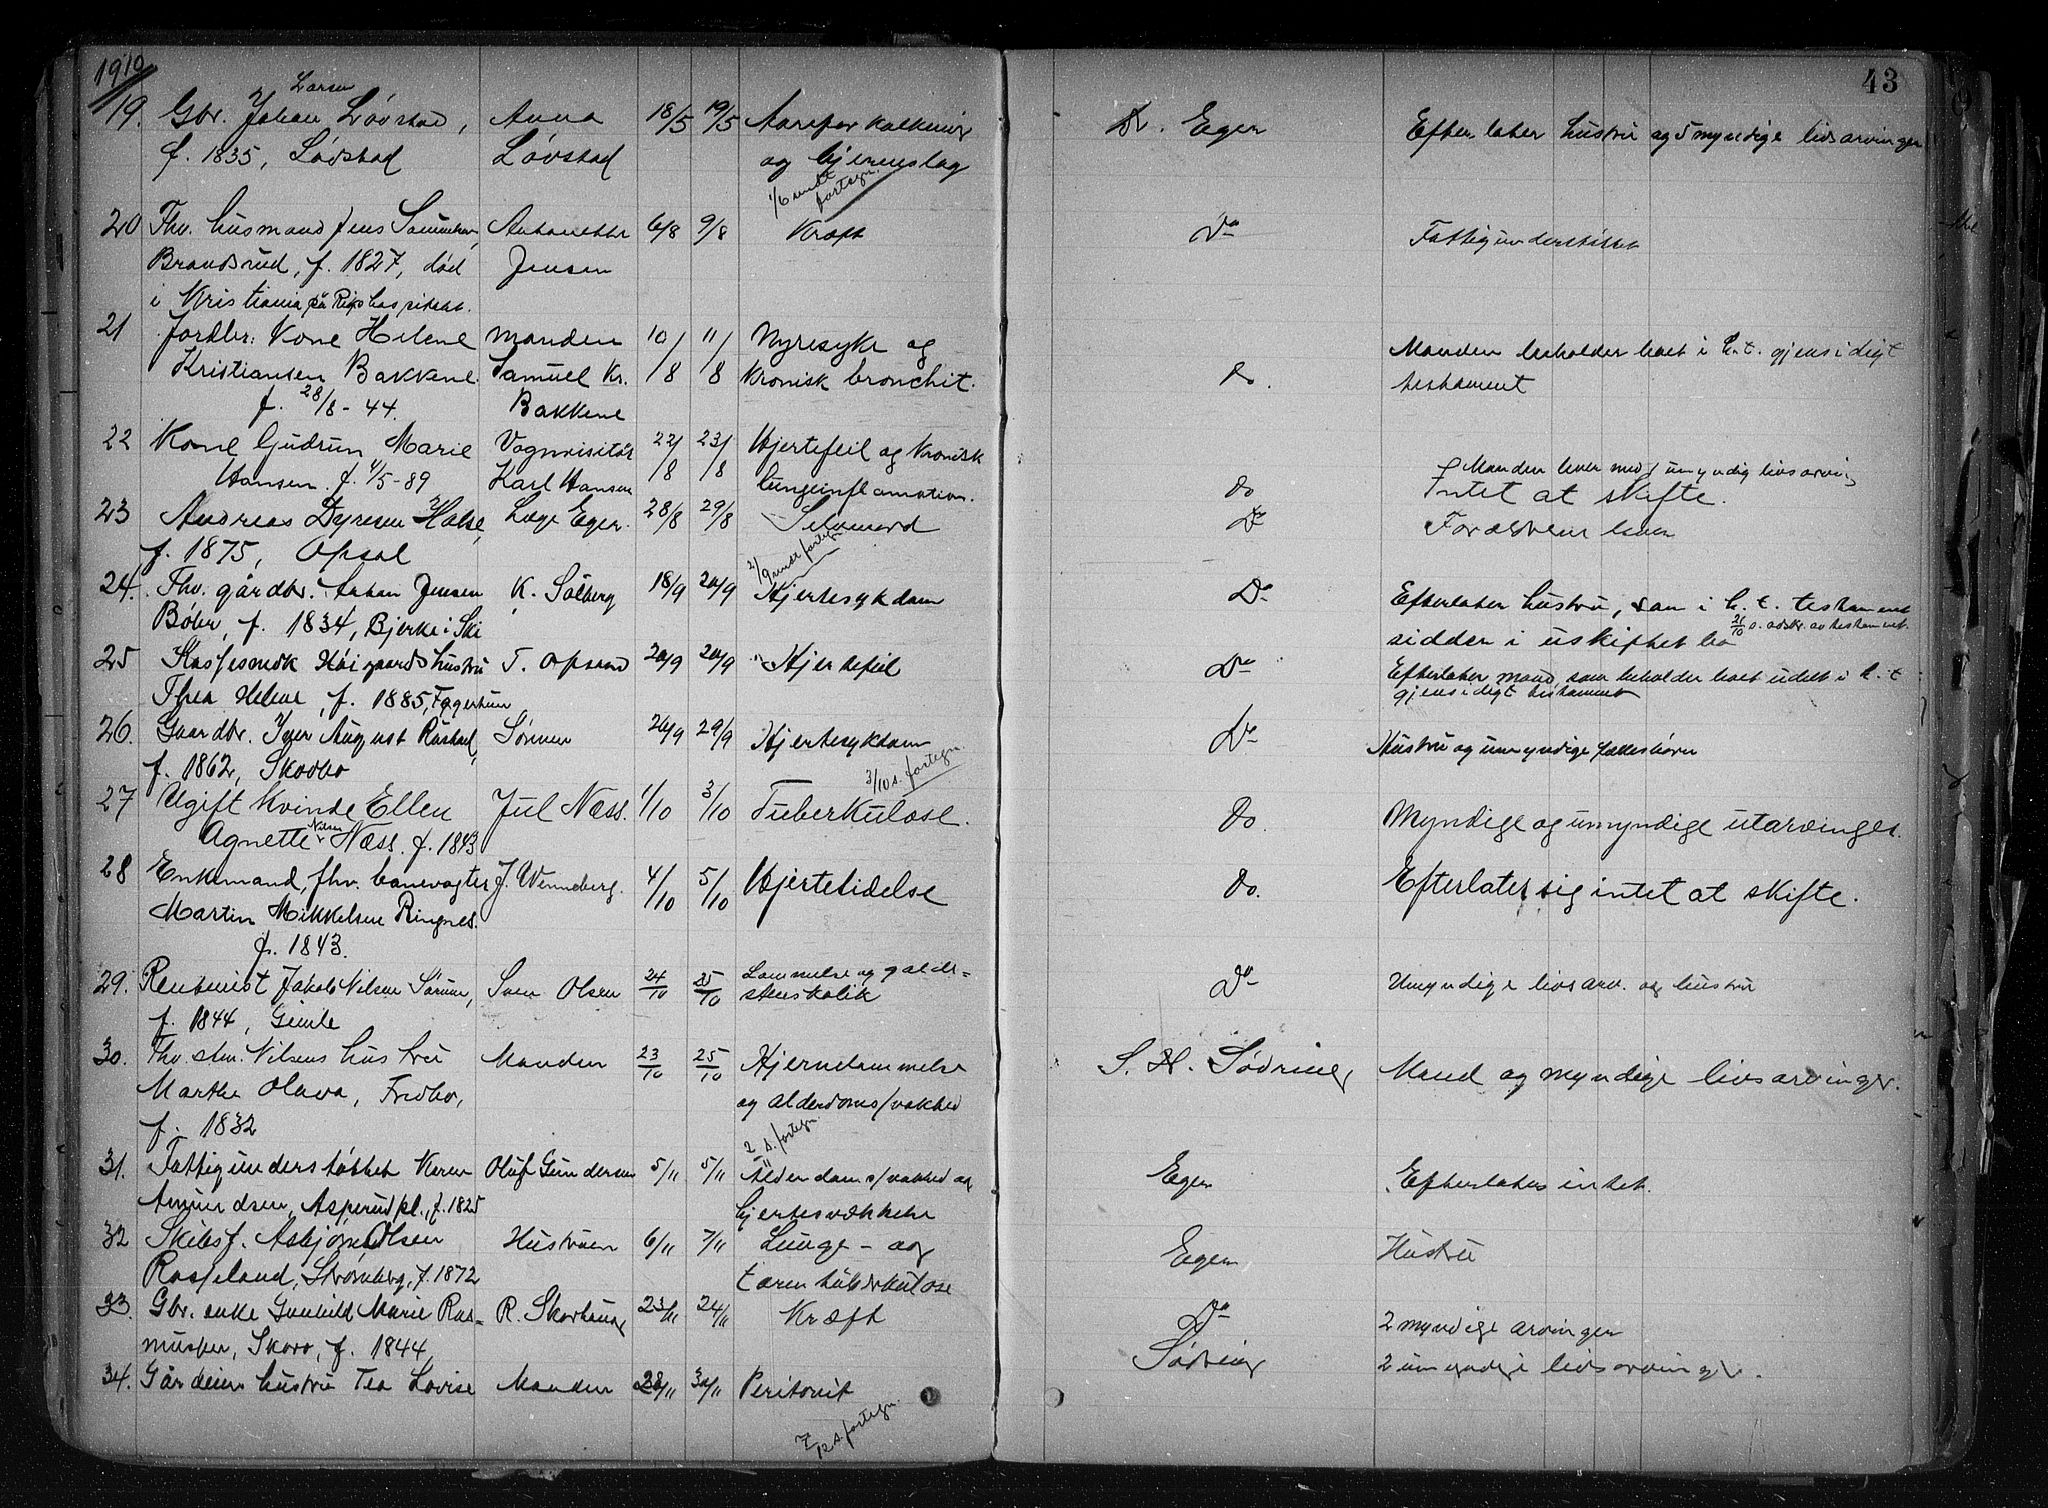 1910
43
19. Gbr. Johan Larsen Løvstad, Anna 18/5 19/5 Aareforkalkning Dr. Eger Efterlater hustru og 5 myndige livsarvinger
f. 1835, Løvstad Løvstad og hjerneslag
1/6 sendt fortegn.
20 Fhv. husmand Jens Antonette 6/8 9/8 Kræft Do Fattigunderstøttet
Brandsrud, f. 1827, død Jensen
i Kristiania på Rikshospitalet.
21 Jordbr. Kone Helene Manden 10/8 11/8 Nyresyke og Manden beholder boet i h.t. gjensidigt
Kristiansen Bakkene. Samuel Kr. Kronisk bronchit. do. testament
f. 28/8-44. Bakkene
22 Kone Gudrun Marie Vognvisitør 22/8 23/8 Hjertefeil og Kronisk Manden lever med 1 umyndig livsarving
Hansen. f. 4/5-89 Karl Hansen Lungeinflamation. do Intet at skifte.
23 Andreas Dyresen Halse, Læge Eger. 28/8 29/8 Selvmord Do Forældrene lever
f. 1875, Opsal
2/9 sendt fortegn
24. Fhv. gårdbr. Anton Jensen K. Solberg 18/9 20/9 Hjertesykdom Do Efterlater hustru, som i h.t. testament
Bøler, f. 1834, Bjerke i Ski sidder i uskiftet bo 21/10 s. adskr. av testament.
25 Høigaards hustru T. Opsand 20/9 20/9 Hjertefeil Do Efterlater mand, som beholder boet udelt i h.t
Thea Helene, f. 1885, Fagertun gjensidigt testament
26. Gaardbr. Iver August Rustad, Sønnen 26/9 29/9 Hjertesykdom Do Hustru og umyndige fællesbørn
f. 1862, Skovbo
3/10 s. fortegn.
27 Ugift Kvinde Ellen Jul Næss. 1/10 3/10 Tuberkulose. do. Myndige og umyndige utarvinger.
Agnette Nilsen Næss. f. 1843
28 Enkemand, fhv. banevogter J. Wenneberg. 4/10 5/10 Hjertelidelse do. Efterlater sig intet at skifte.
Martin Mikkelsen Ringnes.
f. 1843.
29. Rentenist Jakob Nilsen Sørum, Sven Olsen 24/10 25/10 Lammelse og galde- Do Umyndige livsarv. og hustru
f. 1844, Gimle stenskolik
30. Fhv. stm. Nilsens hustru Manden 23/10 25/10 Hjernelammelse S. H. Sødring Mand og myndige livsarvinger.
Marthe Olava, Fredbo, og alderdomssvakhed
f. 1832
2/11 s. fortegn
31. Fattigunderstøttet Karen Oluf Gundersen 5/11 5/11 Alderdomssvakhed og Eger Efterlater intet.
Amundsen, Asperudpl., f. 1825 hjertesvækkelse
32 Skibsf. Asbjørn Olsen Hustruen 6/11 7/11 Lunge- og Eger Hustru
Rosseland, Strømberg, f. 1872 tarmtuberkulose
33. Gbr. enke Gunhild Marie Ras- R. Skorhaug 23/11 24/11 Kræft Do 2 myndige arvinger
mussen, Skovo, f. 1844,
34. Gårdeier hustru Tea Lovise Manden 28/11 30/11 Peritonit Sødring 2 umyndige livsarvinger.
7/12 s. fortegn.